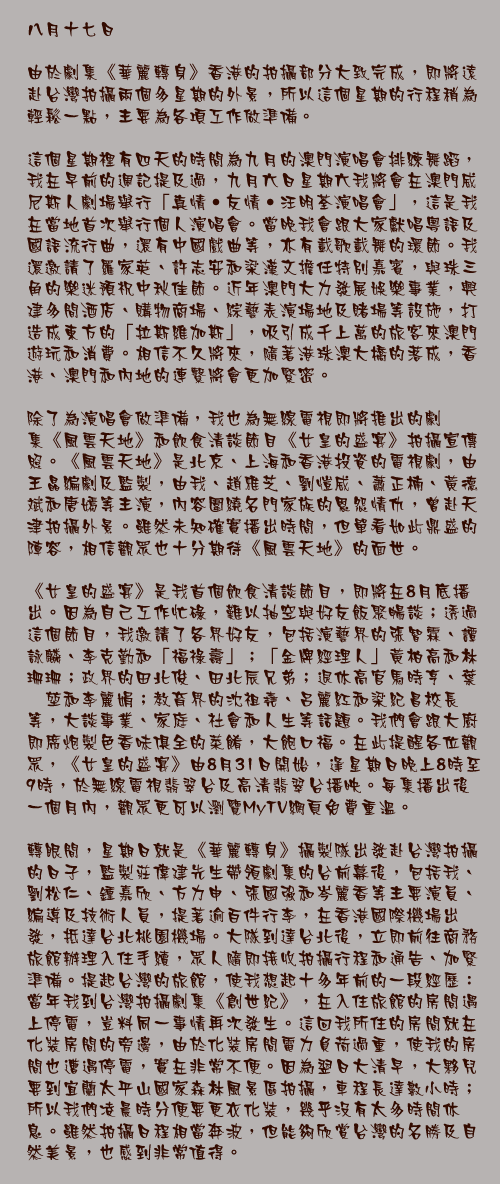 八月十七日
由於劇集《華麗轉身》香港的拍攝部分大致完成，即將遠
赴台灣拍攝兩個多星期的外景，所以這個星期的行程稍為
輕鬆一點，主要為各項工作做準備。
這個星期裡有四天的時間為九月的澳門演唱會排練舞蹈，
我在早前的週記提及過，九月六日星期六我將會在澳門威
尼斯人劇場舉行「真情•友情•汪明荃演唱會」，這是我
在當地首次舉行個人演唱會。當晚我會跟大家獻唱粵語及
國語流行曲，還有中國戲曲等，亦有載歌載舞的環節。我
還邀請了羅家英、許志安和梁漢文擔任特別嘉賓，與珠三
角的樂迷預祝中秋佳節。近年澳門大力發展娛樂事業，興
建多間酒店、購物商場、綜藝表演場地及賭場等設施，打
造成東方的「拉斯維加斯」，吸引成千上萬的旅客來澳門
遊玩和消費。相信不久將來，隨著港珠澳大橋的落成，香
港、澳門和內地的連繫將會更加緊密。
除了為演唱會做準備，我也為無線電視即將推出的劇
集《風雲天地》和飲食清談節目《女皇的盛宴》拍攝宣傳
照。《風雲天地》是北京、上海和香港投資的電視劇，由
王晶編劇及監製，由我、趙雅芝、劉愷威、蕭正楠、黃德
斌和唐嫣等主演，內容圍繞名門家族的恩怨情仇，曾赴天
津拍攝外景。雖然未知確實播出時間，但單看如此鼎盛的
陣容，相信觀眾也十分期待《風雲天地》的面世。
《女皇的盛宴》是我首個飲食清談節目，即將在8月底播
出。因為自己工作忙碌，難以抽空與好友飯聚暢談；透過
這個節目，我邀請了各界好友，包括演藝界的張智霖、譚
詠麟、李克勤和「福祿壽」；「金牌經理人」黃柏高和林
珊珊；政界的田北俊、田北辰兄弟；退休高官馬時亨、葉
　堃和李麗娟；教育界的沈祖堯、呂麗紅和梁妃昌校長
等，大談事業、家庭、社會和人生等話題。我們會跟大廚
即席炮製色香味俱全的菜餚，大飽口福。在此提醒各位觀
眾，《女皇的盛宴》由8月31日開始，逢星期日晚上8時至
9時，於無線電視翡翠台及高清翡翠台播映。每集播出後
一個月內，觀眾更可以瀏覽MyTV網頁免費重溫。
轉眼間，星期日就是《華麗轉身》攝製隊出發赴台灣拍攝
的日子，監製莊偉建先生帶領劇集的台前幕後，包括我、
劉松仁、鍾嘉欣、方力申、張國強和岑麗香等主要演員、
編導及技術人員，提著逾百件行李，在香港國際機場出
發，抵達台北桃園機場。大隊到達台北後，立即前往商務
旅館辦理入住手續，眾人隨即接收拍攝行程和通告、加緊
準備。提起台灣的旅館，使我想起十多年前的一段經歷：
當年我到台灣拍攝劇集《創世紀》，在入住旅館的房間遇
上停電，豈料同一事情再次發生。這回我所住的房間就在
化裝房間的旁邊，由於化裝房間電力負荷過重，使我的房
間也遭遇停電，實在非常不便。因為翌日大清早，大夥兒
要到宜蘭太平山國家森林風景區拍攝，車程長達數小時；
所以我們凌晨時分便要更衣化裝，幾乎沒有太多時間休
息。雖然拍攝日程相當奔波，但能夠欣賞台灣的名勝及自
然美景，也感到非常值得。